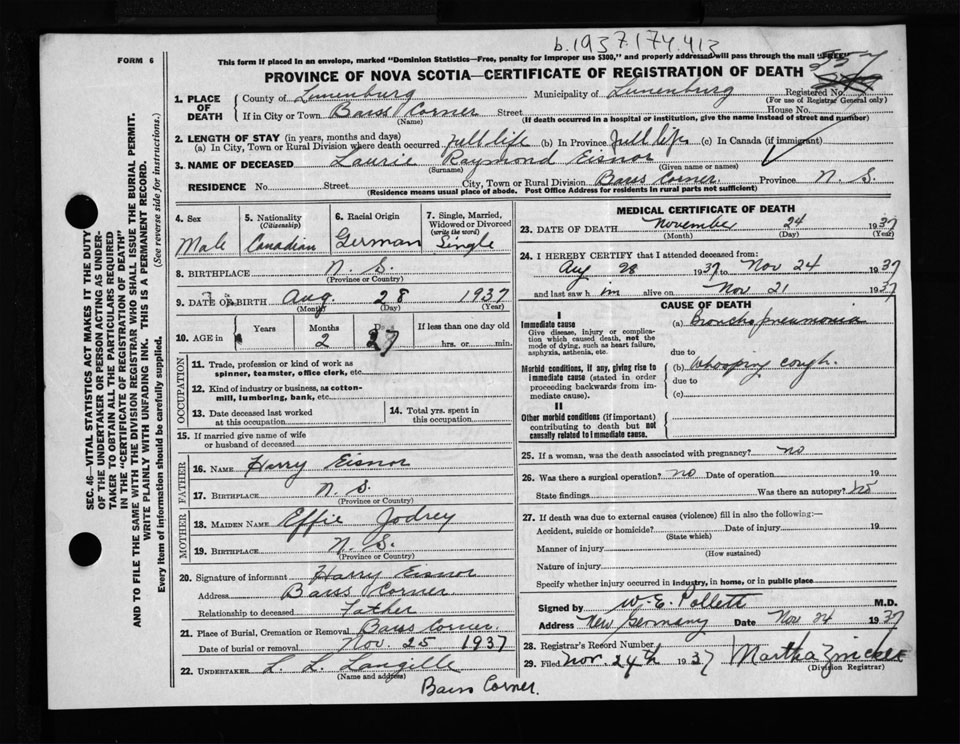 b.1937.174.413
FORM 6
This form if placed in an envelope, marked "Dominion Statistics—Free, penalty for improper use $300," and properly addressed will pass through the mail "FREE"
PROVINCE OF NOVA SCOTIA—CERTIFICATE OF REGISTRATION OF DEATH
1. PLACE OF DEATH
County of Lunenburg Municipality of Lunenburg Registered No.
(For use of Registrar General only)
If in City or Town Barss Corner Street House No.
(Name) (If death occurred in a hospital or institution, give the name instead of street and number)
2. LENGTH OF STAY (in years, months and days)
(a) In City, Town or Rural Division where death occurred full life (b) In Province full life (c) In Canada (if immigrant)
3. NAME OF DECEASED Laurie Raymond Eisnor
(Surname) (Given name or names)
RESIDENCE No. Street City, Town or Rural Division Barss Corner. Province N. S.
(Residence means usual place of abode. Post Office Address for residents in rural parts not sufficient)
4. Sex
Male
5. Nationality (Citizenship)
Canadian
6. Racial Origin
German
7. Single, Married, Widowed or Divorced (write the word)
Single
8. BIRTHPLACE N. S.
(Province or Country)
9. DATE OF BIRTH Aug 28 1937
(Month) (Day) (Year)
10. AGE in Years Months 2 Days 27 If less than one day old
hrs. or min.
OCCUPATION
11. Trade, profession or kind of work as spinner, teamster, office clerk, etc.
12. Kind of industry or business, as cotton-mill, lumbering, bank, etc.
13. Date deceased last worked at this occupation
14. Total yrs. spent in this occupation
15. If married give name of wife or husband of deceased
FATHER
16. NAME Harry Eisnor
17. BIRTHPLACE N. S.
(Province or Country)
MOTHER
18. MAIDEN NAME Effie Jodrey
19. BIRTHPLACE N. S.
(Province or Country)
20. Signature of informant Harry Eisnor
Address Barss Corner
Relationship to deceased Father
21. Place of Burial, Cremation or Removal Barss Corner.
Date of burial or removal Nov. 25 1937
22. UNDERTAKER L. L. Langille
(Name and address)
Barss Corner.
MEDICAL CERTIFICATE OF DEATH
23. DATE OF DEATH November 24 1937
(Month) (Day) (Year)
24. I HEREBY CERTIFY that I attended deceased from
Aug 28 1937 to Nov 24 1937
and last saw him alive on Nov 21 1937
CAUSE OF DEATH
I
Immediate cause
Give disease, injury or complication which caused death, not the mode of dying, such as heart failure, asphyxia, asthenia, etc.
(a) Broncho pneumonia
due to
Morbid conditions, if any, giving rise to immediate cause (stated in order proceeding backwards from immediate cause).
(b) Whooping cough.
due to
(c)
II
Other morbid conditions (if important) contributing to death but not causally related to immediate cause.
25. If a woman, was the death associated with pregnancy? no
26. Was there a surgical operation? no Date of operation 19
State findings Was there an autopsy? no
27. If death was due to external causes (violence) fill in also the following:—
Accident, suicide or homicide? Date of injury 19
(State which)
Manner of injury
(How sustained)
Nature of injury
Specify whether injury occurred in industry, in home, or in public place
Signed by W. E. Pollett M.D.
Address New Germany Date Nov 24 1937
28. Registrar's Record Number
29. Filed Nov. 24th 1937 Martha Zinck
(Division Registrar)
SEC. 46—VITAL STATISTICS ACT MAKES IT THE DUTY
OF THE UNDERTAKER OR PERSON ACTING AS UNDER-
TAKER TO OBTAIN ALL THE PARTICULARS REQUIRED
IN THE "CERTIFICATE OF REGISTRATION OF DEATH"
AND TO FILE THE SAME WITH THE DIVISION REGISTRAR WHO SHALL ISSUE THE BURIAL PERMIT.
WRITE PLAINLY WITH UNFADING INK. THIS IS A PERMANENT RECORD.
Every item of information should be carefully supplied. (See reverse side for instructions.)